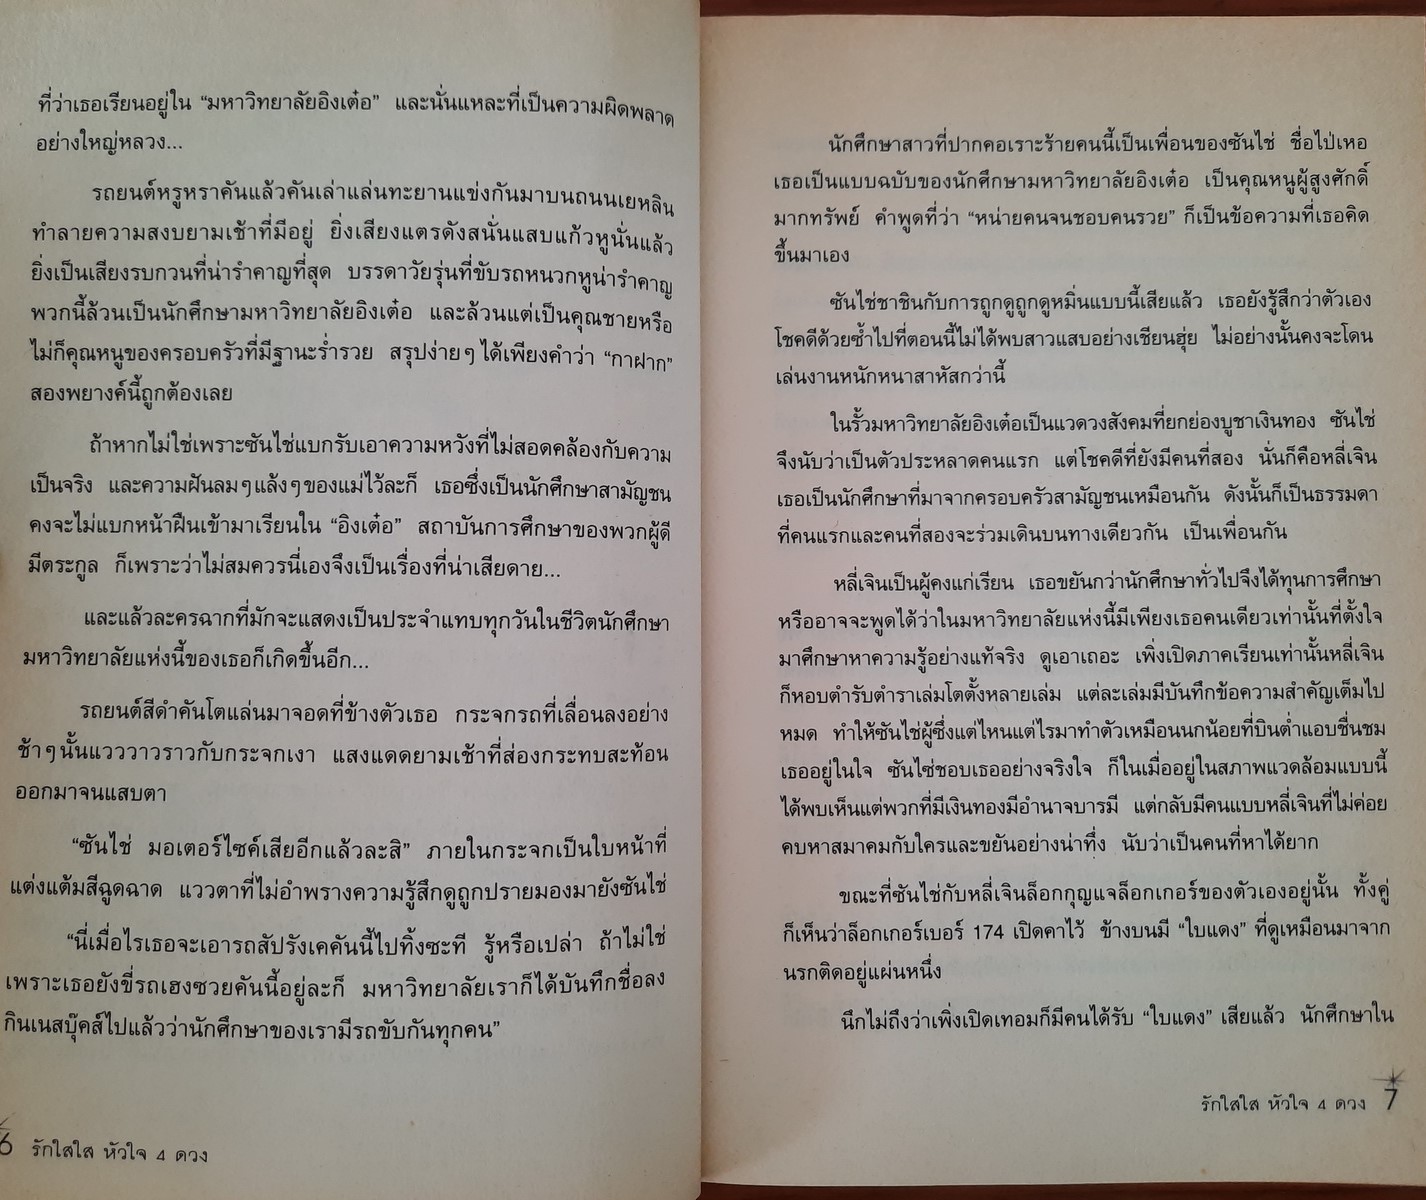 ที่ว่าเธอเรียนอยู่ใน “มหาวิทยาลัยอิงเต๋อ” และนั่นแหละที่เป็นความผิดพลาด
อย่างใหญ่หลวง...
รถยนต์หรูหราคันแล้วคันเล่าแล่นทะยานแข่งกันมาบนถนนเยหลิน
ทำลายความสงบยามเช้าที่มีอยู่ ยิ่งเสียงแตรดังสนั่นแสบแก้วหูนั่นแล้ว
ยิ่งเป็นเสียงรบกวนที่น่ารำคาญที่สุด บรรดาวัยรุ่นที่ขับรถหนวกหูน่ารำคาญ
พวกนี้ล้วนเป็นนักศึกษามหาวิทยาลัยอิงเต๋อ และล้วนแต่เป็นคุณชายหรือ
ไม่ก็คุณหนูของครอบครัวที่มีฐานะร่ำรวย สรุปง่ายๆ ได้เพียงคำว่า “กาฝาก”
สองพยางค์นี้ถูกต้องเลย
ถ้าหากไม่ใช่เพราะซันไช่แบกรับเอาความหวังที่ไม่สอดคล้องกับความ
เป็นจริง และความฝันลมๆ แล้งๆ ของแม่ไว้ละก็ เธอซึ่งเป็นนักศึกษาสามัญชน
คงจะไม่แบกหน้าฝืนเข้ามาเรียนใน “อิงเต๋อ” สถาบันการศึกษาของพวกผู้ดี
มีตระกูล ก็เพราะว่าไม่สมควรนี่เองจึงเป็นเรื่องที่น่าเสียดาย...
และแล้วละครฉากที่มักจะแสดงเป็นประจำแทบทุกวันในชีวิตนักศึกษา
มหาวิทยาลัยแห่งนี้ของเธอก็เกิดขึ้นอีก...
รถยนต์สีดำคันโตแล่นมาจอดที่ข้างตัวเธอ กระจกรถที่เลื่อนลงอย่าง
ช้าๆ นั้นแวววาวราวกับกระจกเงา แสงแดดยามเช้าที่ส่องกระทบสะท้อน
ออกมาจนแสบตา
“ซันไช่ มอเตอร์ไซค์เสียอีกแล้วละสิ” ภายในกระจกเป็นใบหน้าที่
แต่งแต้มสีฉูดฉาด แววตาที่ไม่อำพรางความรู้สึกดูถูกปรายมองมายังซันไช่
“นี่เมื่อไรเธอจะเอารถสัปรังเคคันนี้ไปทิ้งซะที รู้หรือเปล่า ถ้าไม่ใช่
เพราะเธอยังขี่รถเฮงซวยคันนี้อยู่ละก็ มหาวิทยาลัยเราก็ได้บันทึกชื่อลง
กินเนสบุ๊คส์ไปแล้วว่านักศึกษาของเรามีรถขับกันทุกคน”
6 รักใสใส หัวใจ 4 ดวง
นักศึกษาสาวที่ปากคอเราะร้ายคนนี้เป็นเพื่อนของซันไช่ ชื่อไป่เหอ
เธอเป็นแบบฉบับของนักศึกษามหาวิทยาลัยอิงเต๋อ เป็นคุณหนูผู้สูงศักดิ์
มากทรัพย์ คำพูดที่ว่า “หน่ายคนจนชอบคนรวย” ก็เป็นข้อความที่เธอคิด
ขึ้นมาเอง
ซันไช่ชาชินกับการถูกดูถูกดูหมิ่นแบบนี้เสียแล้ว เธอยังรู้สึกว่าตัวเอง
โชคดีด้วยซ้ำไปที่ตอนนี้ไม่ได้พบสาวแสบอย่างเชียนฮุ่ย ไม่อย่างนั้นคงจะโดน
เล่นงานหนักหนาสาหัสกว่านี้
ในรั้วมหาวิทยาลัยอิงเต๋อเป็นแวดวงสังคมที่ยกย่องบูชาเงินทอง ซันไช่
จึงนับว่าเป็นตัวประหลาดคนแรก แต่โชคดีที่ยังมีคนที่สอง นั่นก็คือหลี่เจิน
เธอเป็นนักศึกษาที่มาจากครอบครัวสามัญชนเหมือนกัน ดังนั้นก็เป็นธรรมดา
ที่คนแรกและคนที่สองจะร่วมเดินบนทางเดียวกัน เป็นเพื่อนกัน
หลี่เจินเป็นผู้คงแก่เรียน เธอขยันกว่านักศึกษาทั่วไปจึงได้ทุนการศึกษา
หรืออาจจะพูดได้ว่าในมหาวิทยาลัยแห่งนี้มีเพียงเธอคนเดียวเท่านั้นที่ตั้งใจ
มาศึกษาหาความรู้อย่างแท้จริง ดูเอาเถอะ เพิ่งเปิดภาคเรียนเท่านั้นหลี่เจิน
ก็หอบตำรับตำราเล่มโตตั้งหลายเล่ม แต่ละเล่มมีบันทึกข้อความสำคัญเต็มไป
หมด ทำให้ซันไช่ผู้ซึ่งแต่ไหนแต่ไรมาทำตัวเหมือนนกน้อยที่บินต่ำแอบชื่นชม
เธออยู่ในใจ ซันไซ่ชอบเธออย่างจริงใจ ก็ในเมื่ออยู่ในสภาพแวดล้อมแบบนี้
ได้พบเห็นแต่พวกที่มีเงินทองมีอำนาจบารมี แต่กลับมีคนแบบหลี่เจินที่ไม่ค่อย
คบหาสมาคมกับใครและขยันอย่างน่าทึ่ง นับว่าเป็นคนที่หาได้ยาก
ขณะที่ซันไช่กับหลี่เจินล็อกกุญแจล็อกเกอร์ของตัวเองอยู่นั้น ทั้งคู่
ก็เห็นว่าล็อกเกอร์เบอร์ 174 เปิดคาไว้ ข้างบนมี “ใบแดง” ที่ดูเหมือนมาจาก
นรกติดอยู่แผ่นหนึ่ง
นึกไม่ถึงว่าเพิ่งเปิดเทอมก็มีคนได้รับ “ใบแดง” เสียแล้ว นักศึกษาใน
รักใสใส หัวใจ 4 ดวง 7